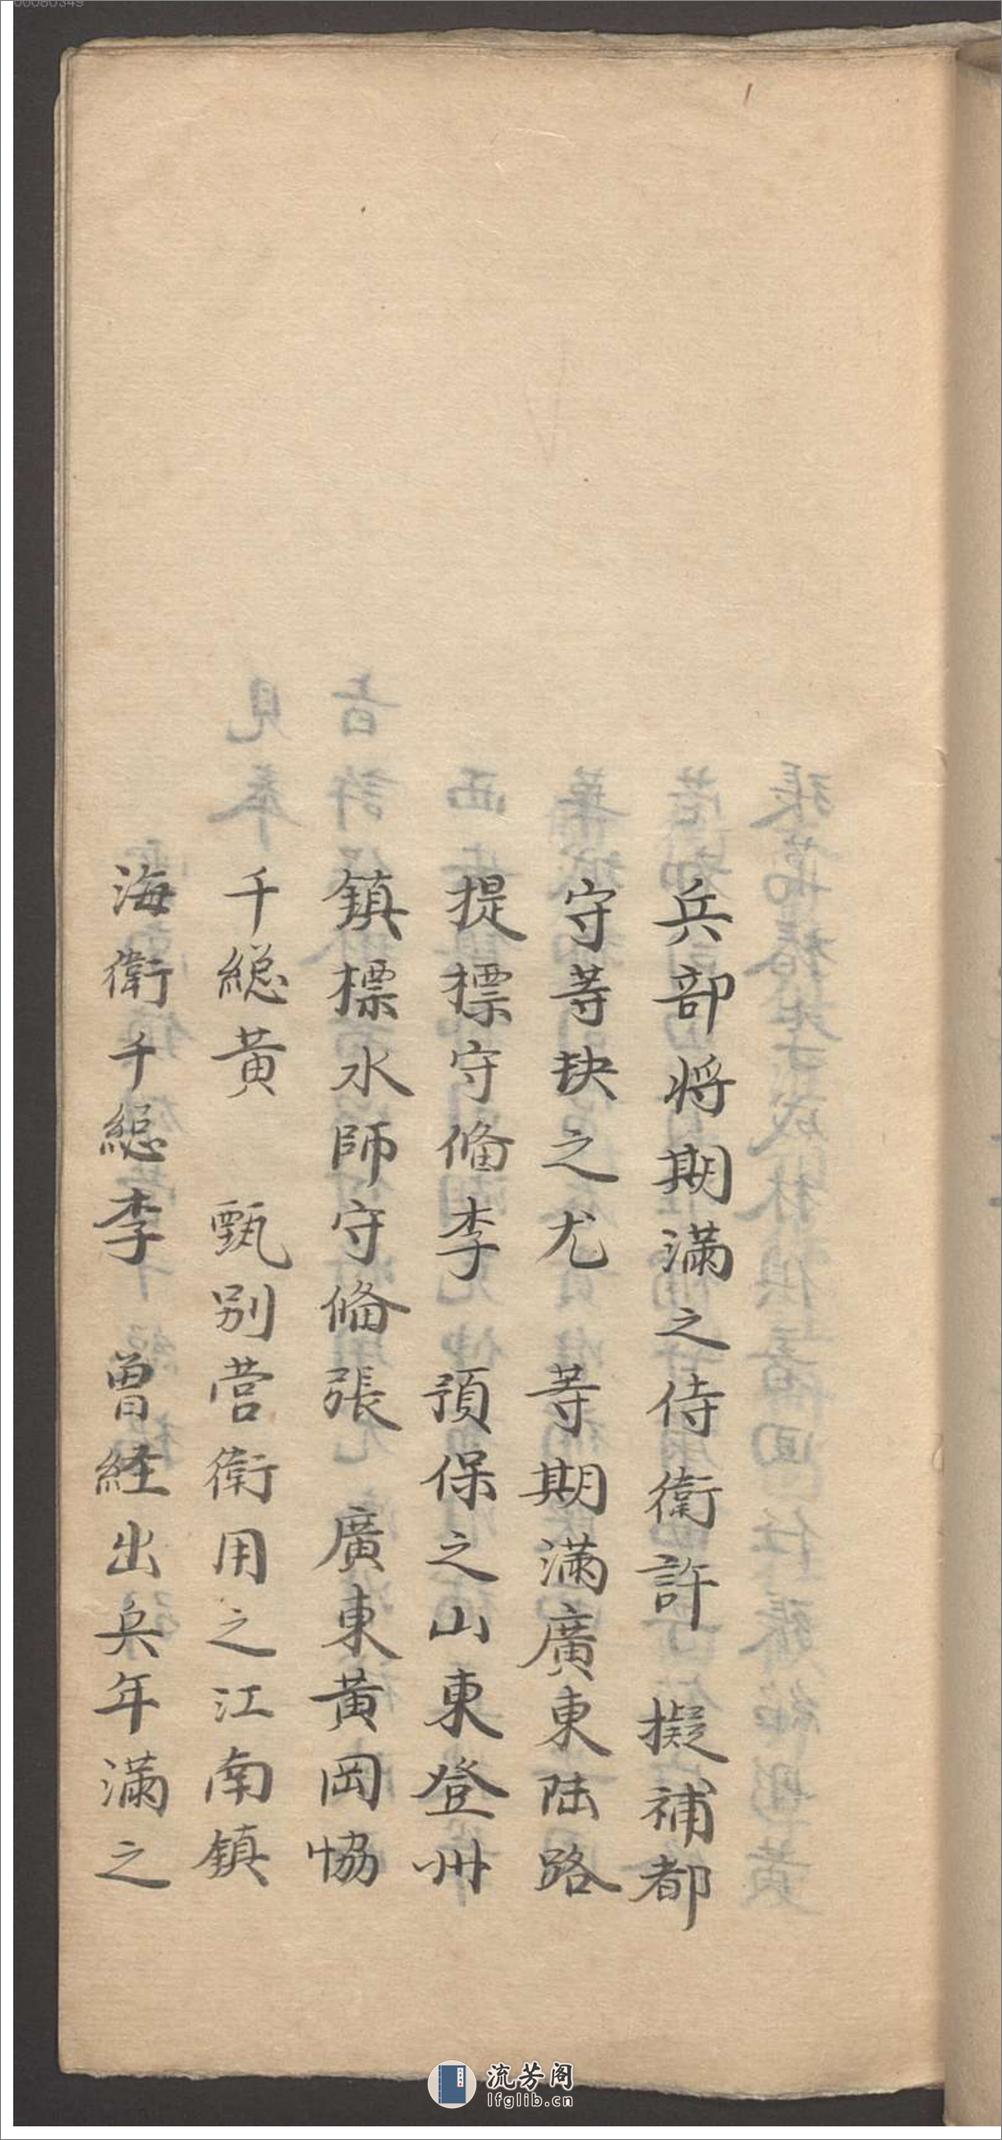 兵部将期滿之侍衛許　擬補都
守等缺之尤　等期滿廣東陸路
提標守俻李　預保之山東登州
鎮標水師守俻張　廣東黃岡協
千総黃　甄别营衛用之江南鎮
海衛千総李　曽経出兵年滿之
流芳阁
lfglib.cn